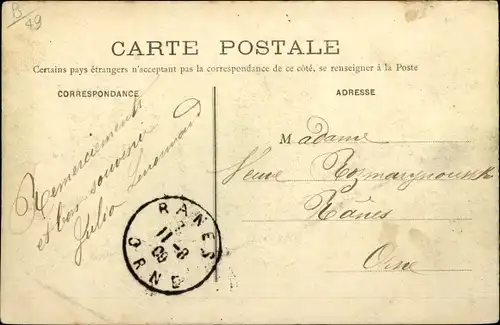 B
49
CARTE POSTALE
Certains pays étrangers n'acceptent pas la correspondance de ce côté, se renseigner à la Poste
CORRESPONDANCE
ADRESSE
Remerciements
et bon souvenir
Julia
Madame
Veuve
Rânes
Orne
RANES
11-8
08
ORNE